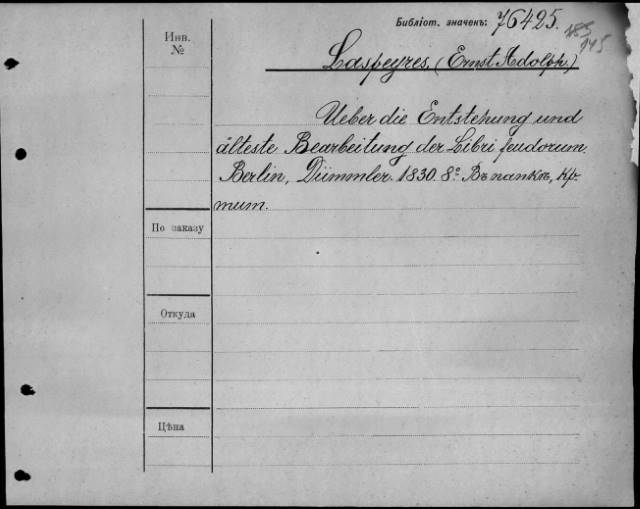 Библіот. значенъ: 76425.
145
Инв.
№
Laspeyres, (Ernst Adolph.)
Ueber die Entstehung und
älteste Bearbeitung der Libri feudorum.
Berlin, Dümmler. 1830. 8º. Въ папкѣ, кр.
тит.
По заказу
Откуда
Цѣна